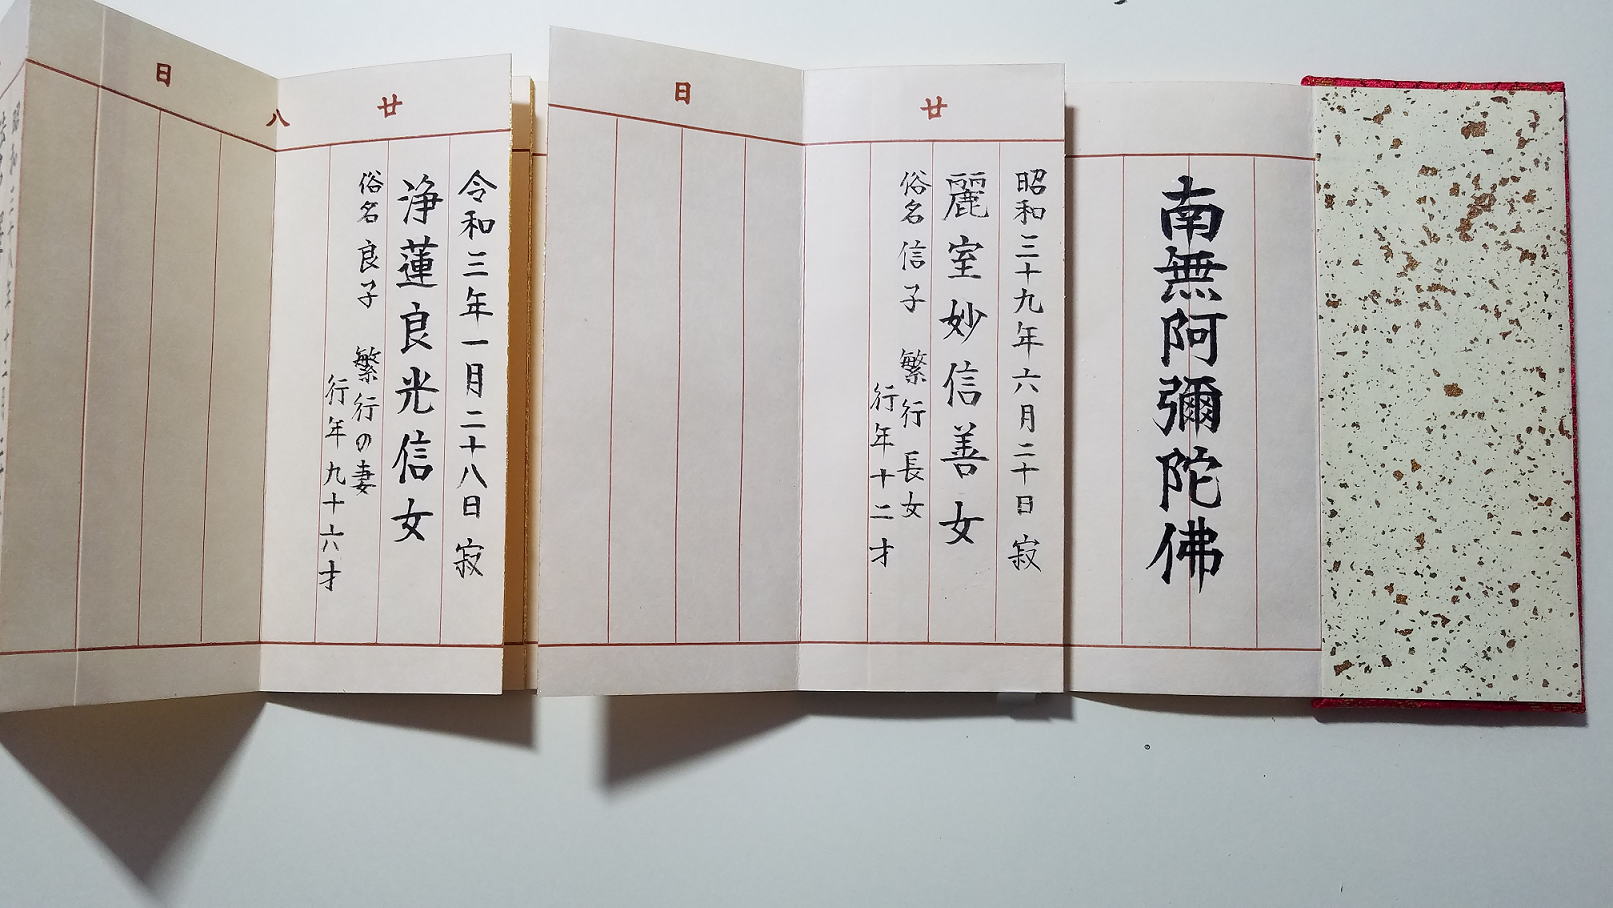 南無阿彌陀佛
廿日
昭和三十九年六月二十日 寂
麗室妙信善女
俗名 信子 繁行 長女
行年十二才
廿八日
令和三年一月二十八日 寂
浄蓮良光信女
俗名 良子 繁行の妻
行年九十六才